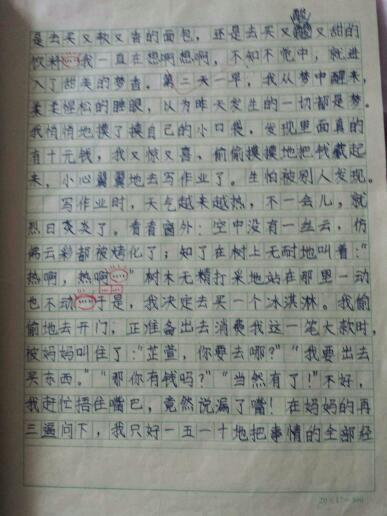 酸
是去买又软又香的面包，还是去买又酸又甜的
饮料……我一直在想啊想啊，不知不觉中，就进
入了甜美的梦香。第二天一早，我从梦中醒来，
柔柔惺松的睡眼，以为昨天发生的一切都是梦。
我悄悄地摸了摸自己的小口袋，发现里面真的
有十元钱，我又惊又喜、偷偷摸摸地把钱藏起
来，小心翼翼地去写作业了。生怕被别人发现。
写作业时，天气越来越热，不一会儿，就
烈日炎炎了。看看窗外：空中没有一丝云，仿
姊云彩都被烤化了；知了在树上无耐地叫着："
热啊，热啊……"树木无精打采地站在那里一动
也不动……于是，我决定去买一个冰淇淋。我偷
偷地去开门，正准备出去消费我这一笔大款时，
被妈妈叫住了："芷萱，你要去哪？""我要出去
买东西。""那你有钱吗？""当然有了！"不好，
我赶忙捂住嘴巴，竟然说漏了嘴！在妈妈的再
三逼问下，我只好一五一十地把事情的全部经